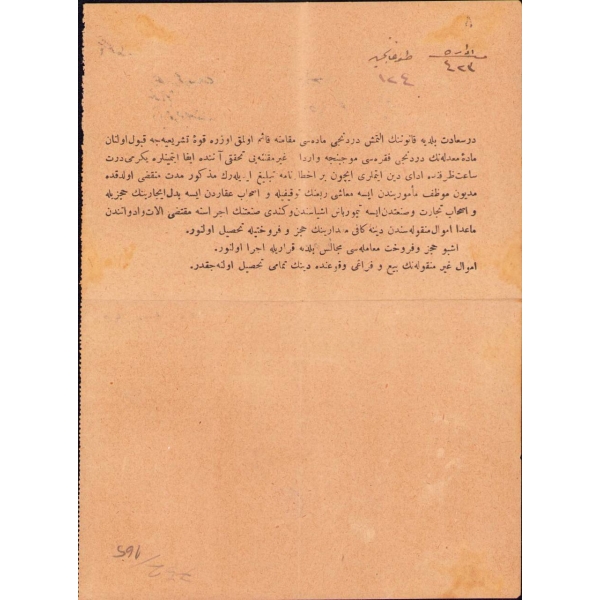 اداره
٤٢٣
١٢٤
در سعادت بلدیه قانوننك التمش دردنجی ماده‌سی مقامنه قائم اولمق اوزره قوهٔ تشریعیه‌جه قبول اولنان
مادهٔ معدله‌نك دردنجی فقره‌سی موجبنجه واردا غیر مقننه‌یی تحقق آننده ایفا ایتمینلره یكرمی درت
ساعت ظرفنده ادای دین ایتملری ایچون بر اخطارنامه تبلیغ ایدیله‌رك مذكور مدت منقضی اولدقده
مدیون موظف مأموریندن ایسه معاشی ربعنك توقیفیله و اصحاب عقاردن ایسه بدل ایجارینك حجزیله
و اصحاب تجارت و صنعتدن ایسه تیمورباش اشیاسندن و كندی صنعتنك اجراسنه مقتضی الات و ادواتندن
ماعدا اموال منقوله‌سندن دینه كافی مقدارینك حجز و فروختیله تحصیل اولنور.
اشبو حجز و فروخت معامله‌سی مجالس بلدیه قراریله اجرا اولنور.
اموال غیر منقوله‌نك بیع و فراغی وقوعنده دینك تمامی تحصیل اولنه‌جقدر.